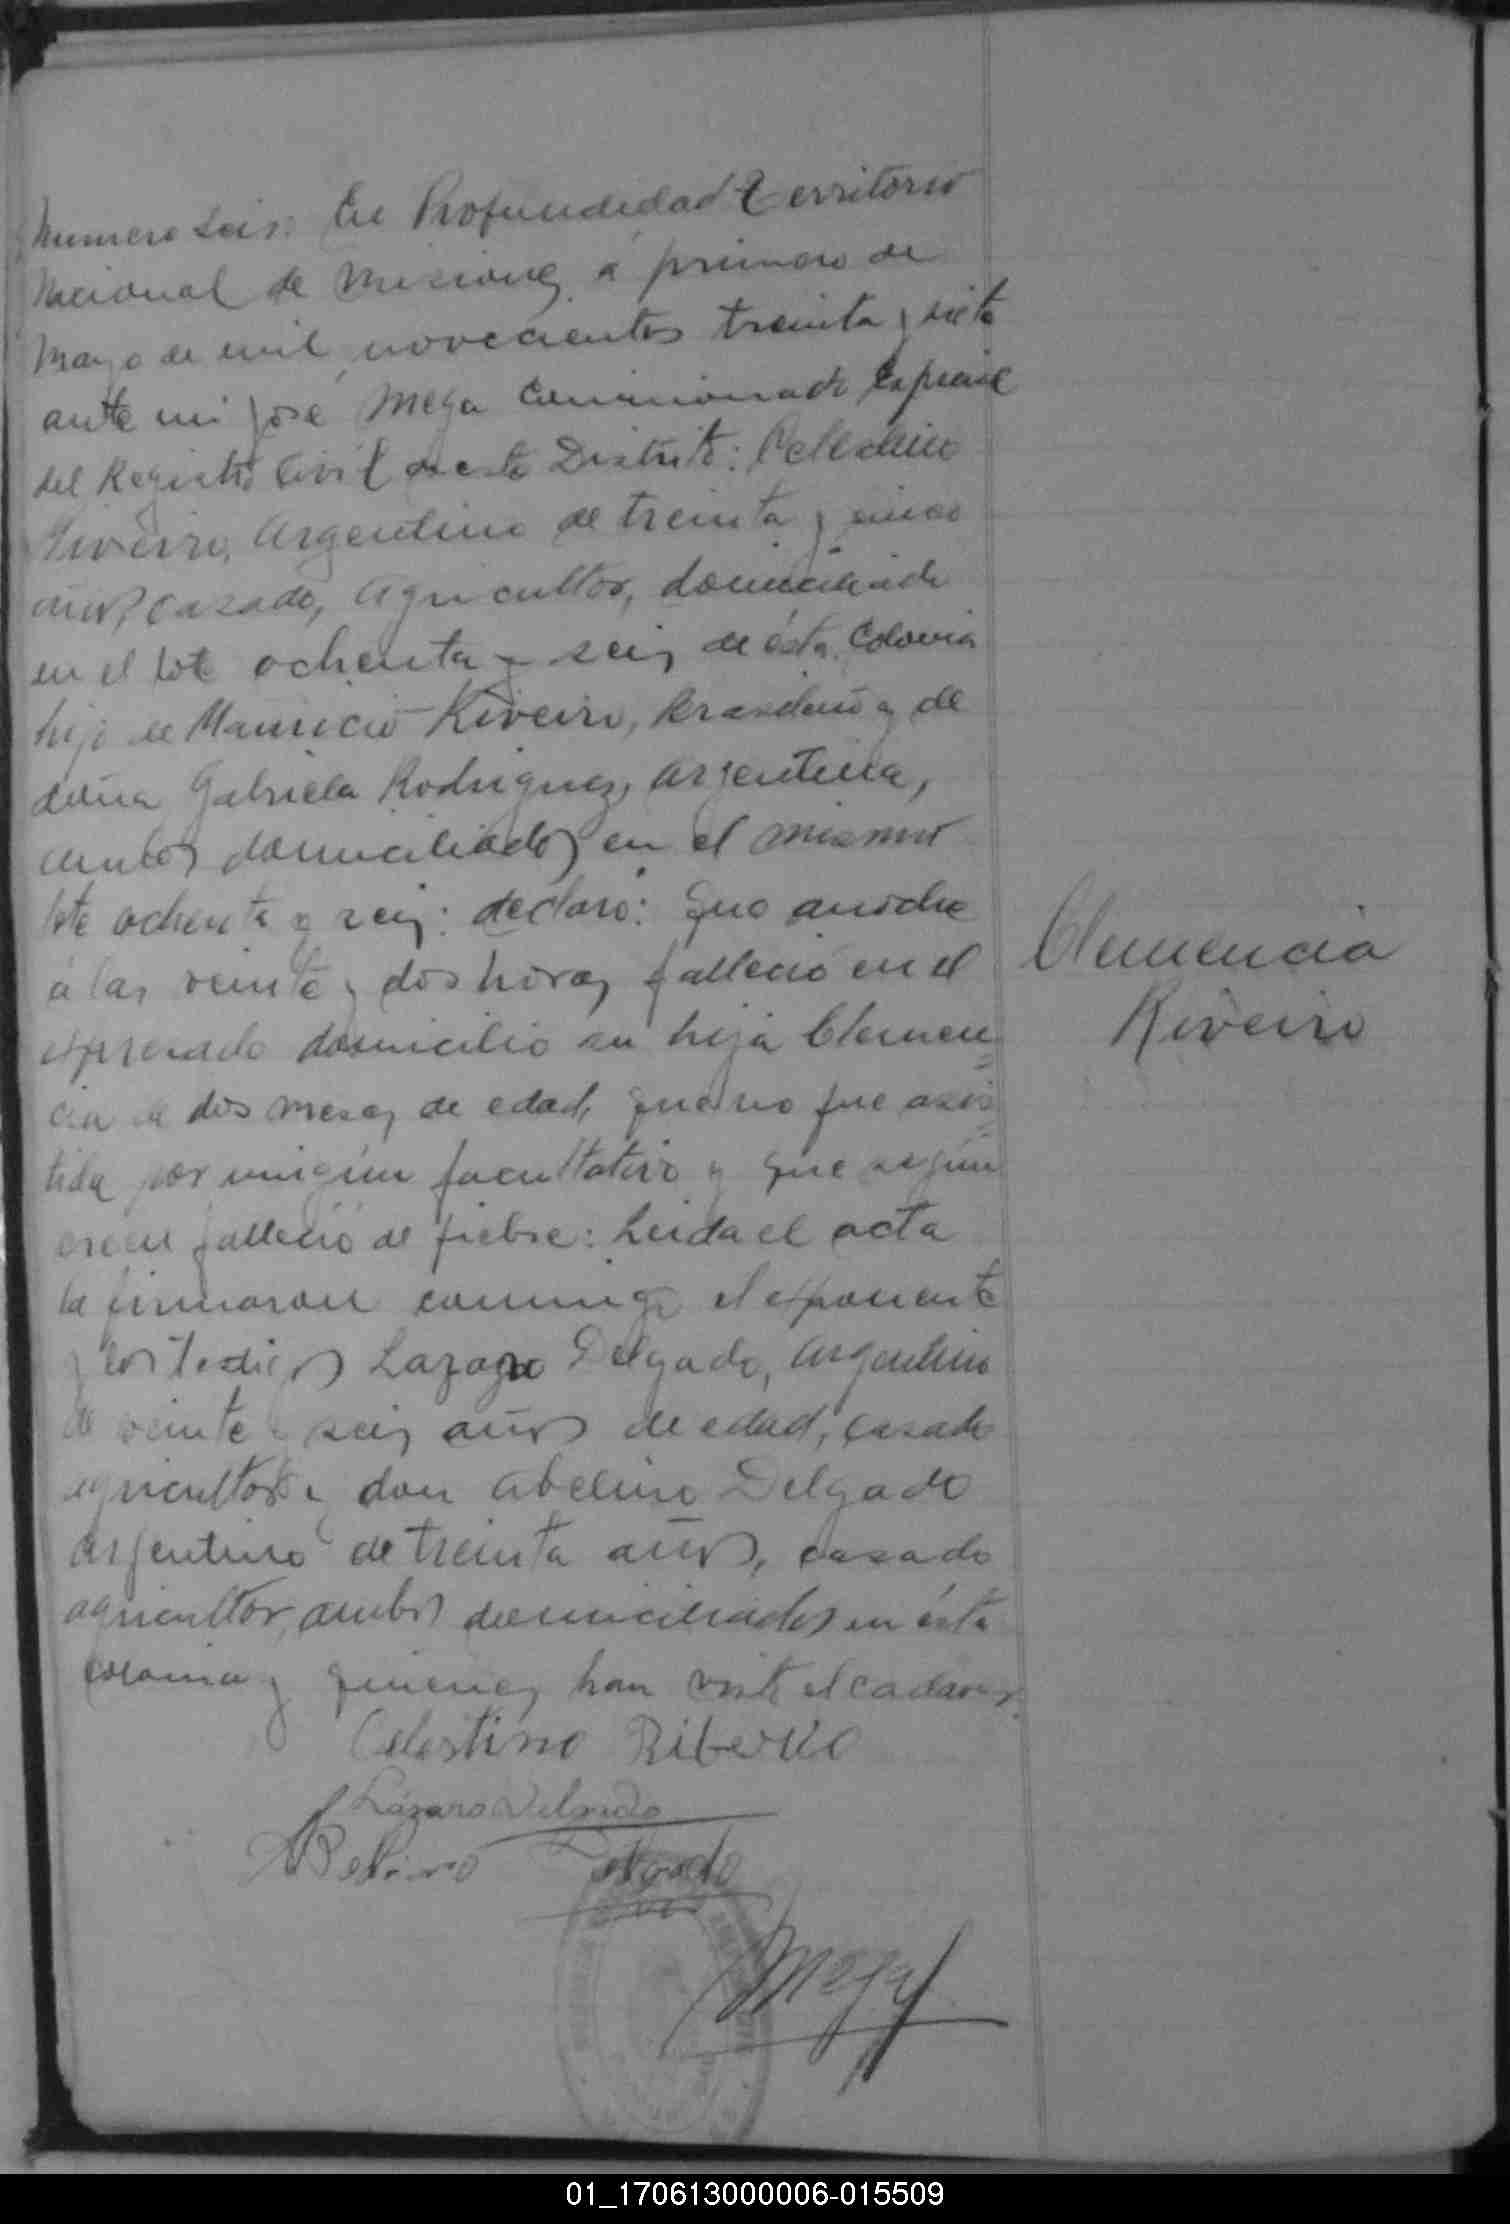 Numero Seis: En Profundidad Territorio
Nacional de Misiones, á primero de
Mayo de mil novecientos treinta y siete
ante mi José Mega Comisionado Especial
del Registro Civil de este Distrito: Celestino
Riveiro, Argentino de treinta y cinco
años, casado, agricultor, domiciliado
en el lote ochenta y seis de ésta Colonia
hijo de Mauricio Riveiro, Brasilero y de
doña Gabriela Rodriguez, argentina,
ambos domiciliados en el mismo
lote ochenta y seis: declaró: que anoche
á las veinte y dos horas falleció en el
expresado domicilio su hija Clemen=
cia de dos meses de edad, que no fue asis=
tida por ningún facultativo y que según
creen falleció de fiebre: Leida el acta
la firmaron conmigo el exponente
y los testigos Lazaro Delgado, argentino
de veinte y seis años de edad, casado
agricultor y don Abelino Delgado
argentino de treinta años, casado
agricultor, ambos domiciliados en ésta
Colonia y quienes han visto el cadaver.
Clemencia
Riveiro
Celestino Ribeiro
Lázaro Delgado
Abelino Delgado
Mega
01_170613000006-015509